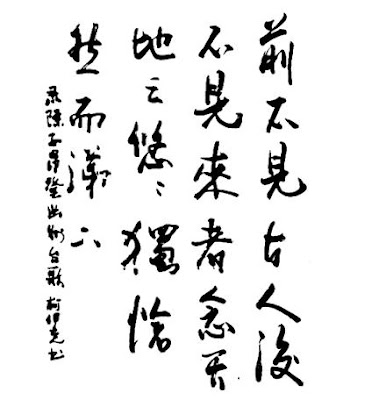 前不見古人後
不見來者念天
地之悠〻獨愴
然而涕下
录陳子昂登幽州台歌 柯书